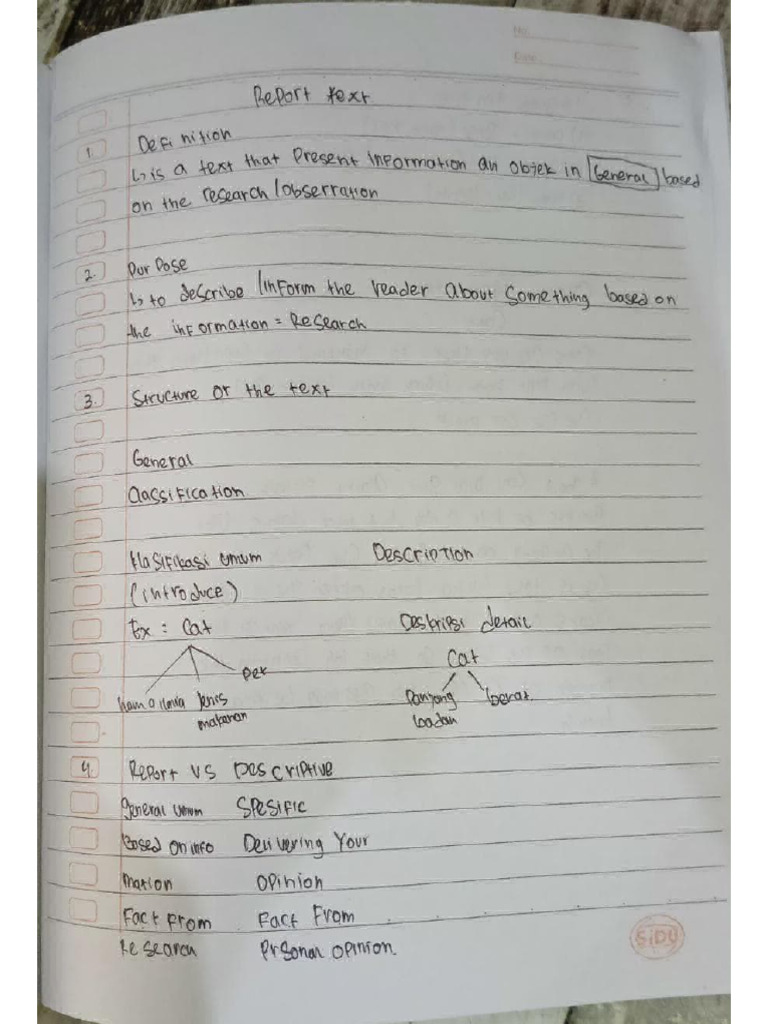 No.
Date
Report text
1. Definition
↳ is a text that Present information an objek in General based
on the research / obserration
2. Purpose
↳ to describe / inform the reader About Something based on
the information = Research
3. Structure of the text
General
Classification
klasifikasi umum Description
(introduce)
Ex : Cat Deskripsi detail
pet Cat
nama ilmia jenis Panjang berat.
makanan badan
4. Report VS Descriptive
general umum Spesific
Based on info Delivering Your
mation Opinion
Fact From Fact From
Research Prsonal opinion.
SIDU